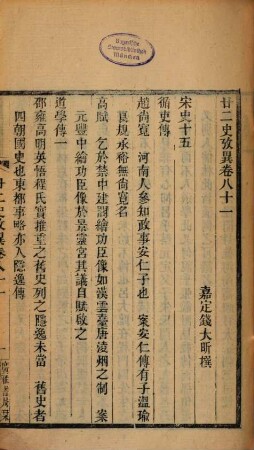 廿二史攷異卷八十一
嘉定錢大昕撰
宋史十五
循吏傳
趙尙寬 河南人參知政事安仁子也 案安仁傳有子溫瑜
良規承裕無尙寬名
高賦 乞於禁中建閣繪功臣像如漢雲臺唐淩烟之制 案
元豐中繪功臣像於景靈宮其議自賦啟之
道學傳一
邵雍高明英悟程氏實推重之舊史列之隱逸未當 舊史者
四朝國史也東都事略亦入隱逸傳
廿二史攷異卷八十一
Bayerische
Staatsbibliothek
München